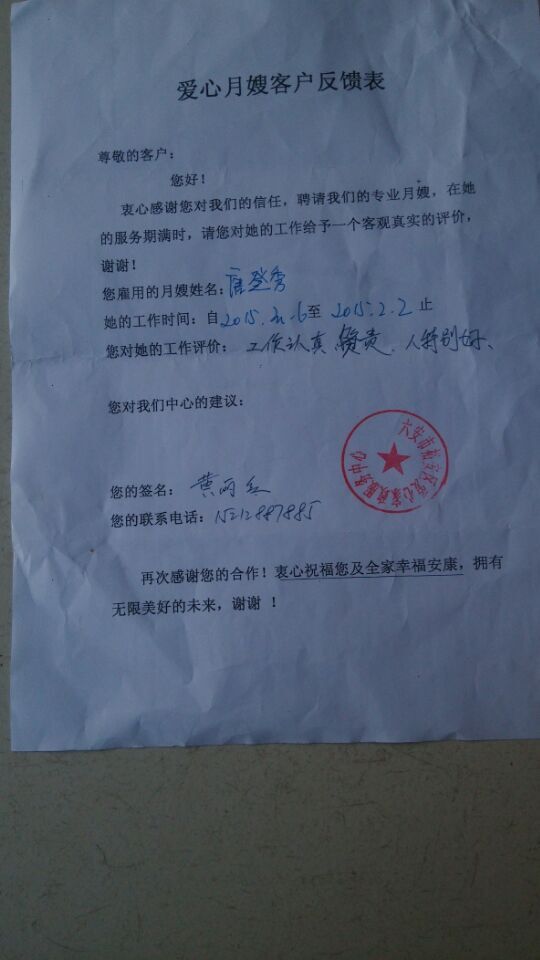 爱心月嫂客户反馈表
尊敬的客户：
您好！
衷心感谢您对我们的信任，聘请我们的专业月嫂，在她
的服务期满时，请您对她的工作给予一个客观真实的评价，
谢谢！
您雇用的月嫂姓名：登秀
她的工作时间：自2015. 6至 2015.2.2 止
您对她的工作评价： 工作认真 负责．人特别好、
您对我们中心的建议：
六安市裕安区爱心家政服务中心
您的签名： 黄丽
您的联系电话：15212887885
再次感谢您的合作！衷心祝福您及全家幸福安康，拥有
无限美好的未来，谢谢 ！